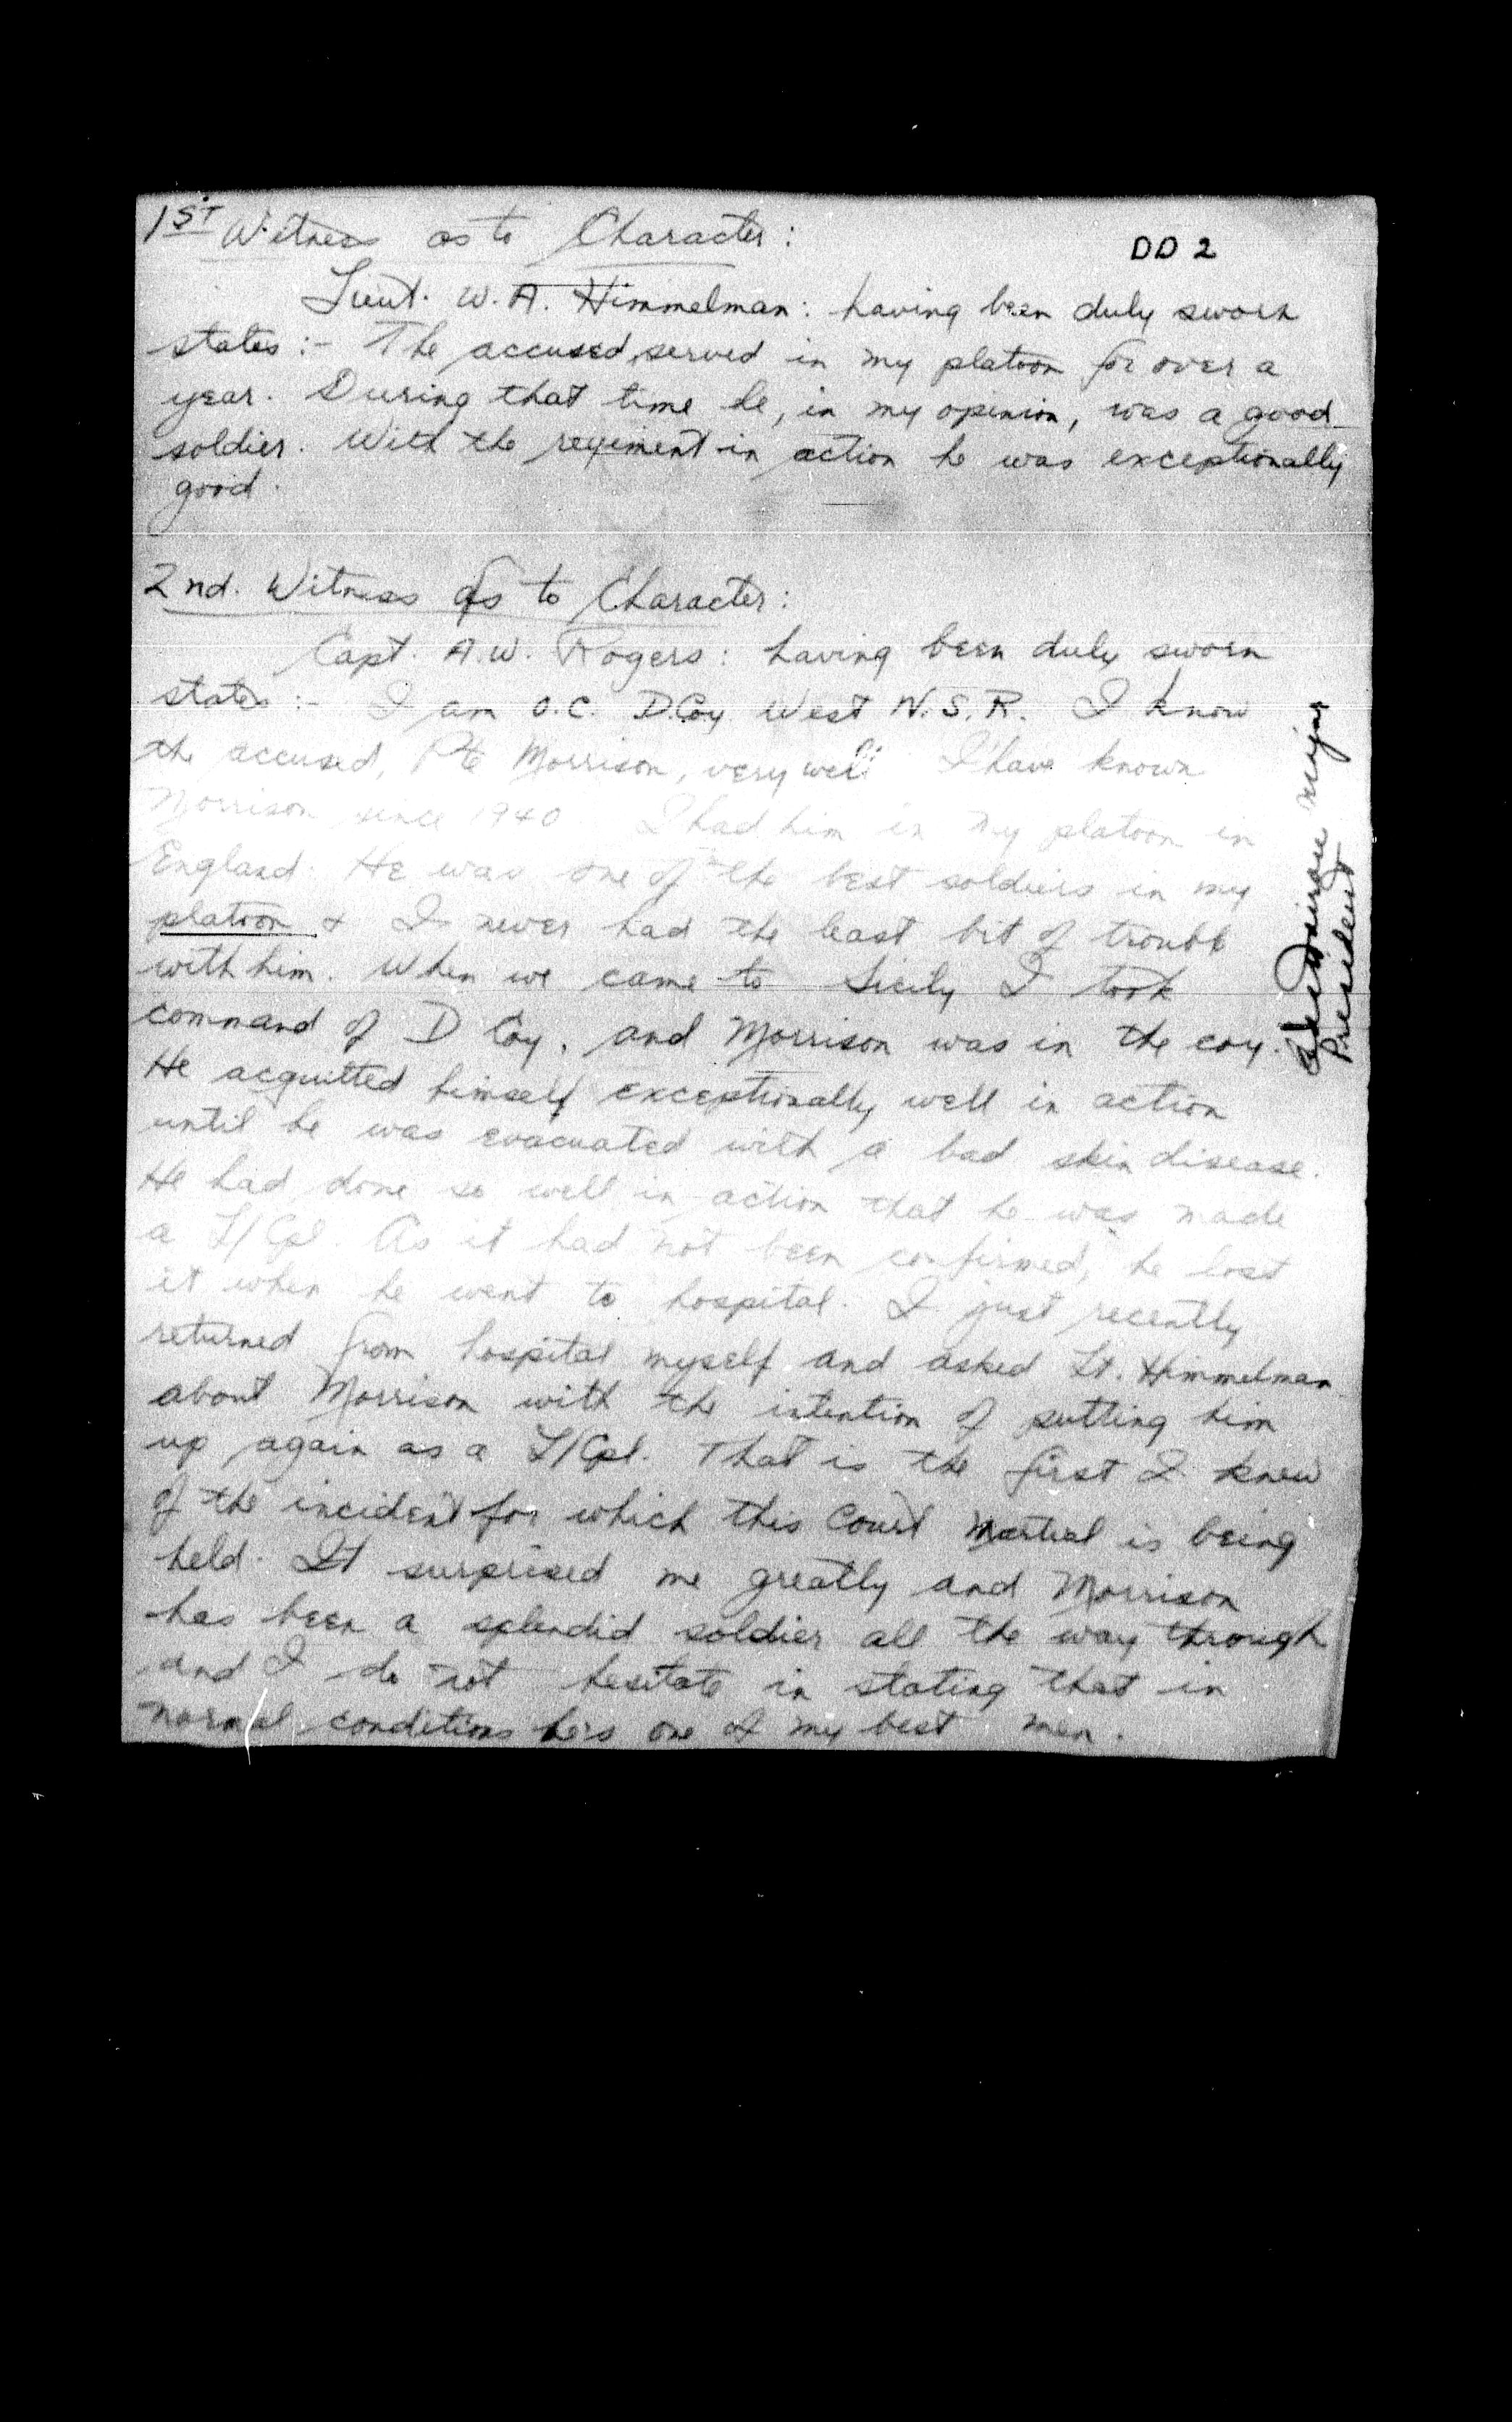 1ST Witness as to Character:
DD 2
Lieut. W. A. Himmelman: having been duly sworn
states:- The accused served in my platoon for over a
year. During that time he, in my opinion, was a good
soldier. With the regiment in action he was exceptionally
good.
2nd. Witness as to Character:
Capt. A.W. Rogers: having been duly sworn
states:- I am O.C. D.Coy. West N.S.R. I know
the accused, Pte Morrison, very well. I have known
Morrison since 1940. I had him in my platoon in
England. He was one of the best soldiers in my
platoon & I never had the least bit of trouble
with him. When we came to Sicily I took
command of D Coy, and Morrison was in the coy.
He acquitted himself exceptionally well in action
until he was evacuated with a bad skin disease.
He had done so well in action that he was made
a L/Cpl. As it had not been confirmed, he lost
it when he went to hospital. I just recently
returned from hospital myself and asked Lt. Himmelman
about Morrison with the intention of putting him
up again as a L/Cpl. That is the first I knew
of the incident for which this Court Martial is being
held. It surprised me greatly and Morrison
has been a splendid soldier all the way through
and I do not hesitate in stating that in
normal conditions he's one of my best men.
Major
President